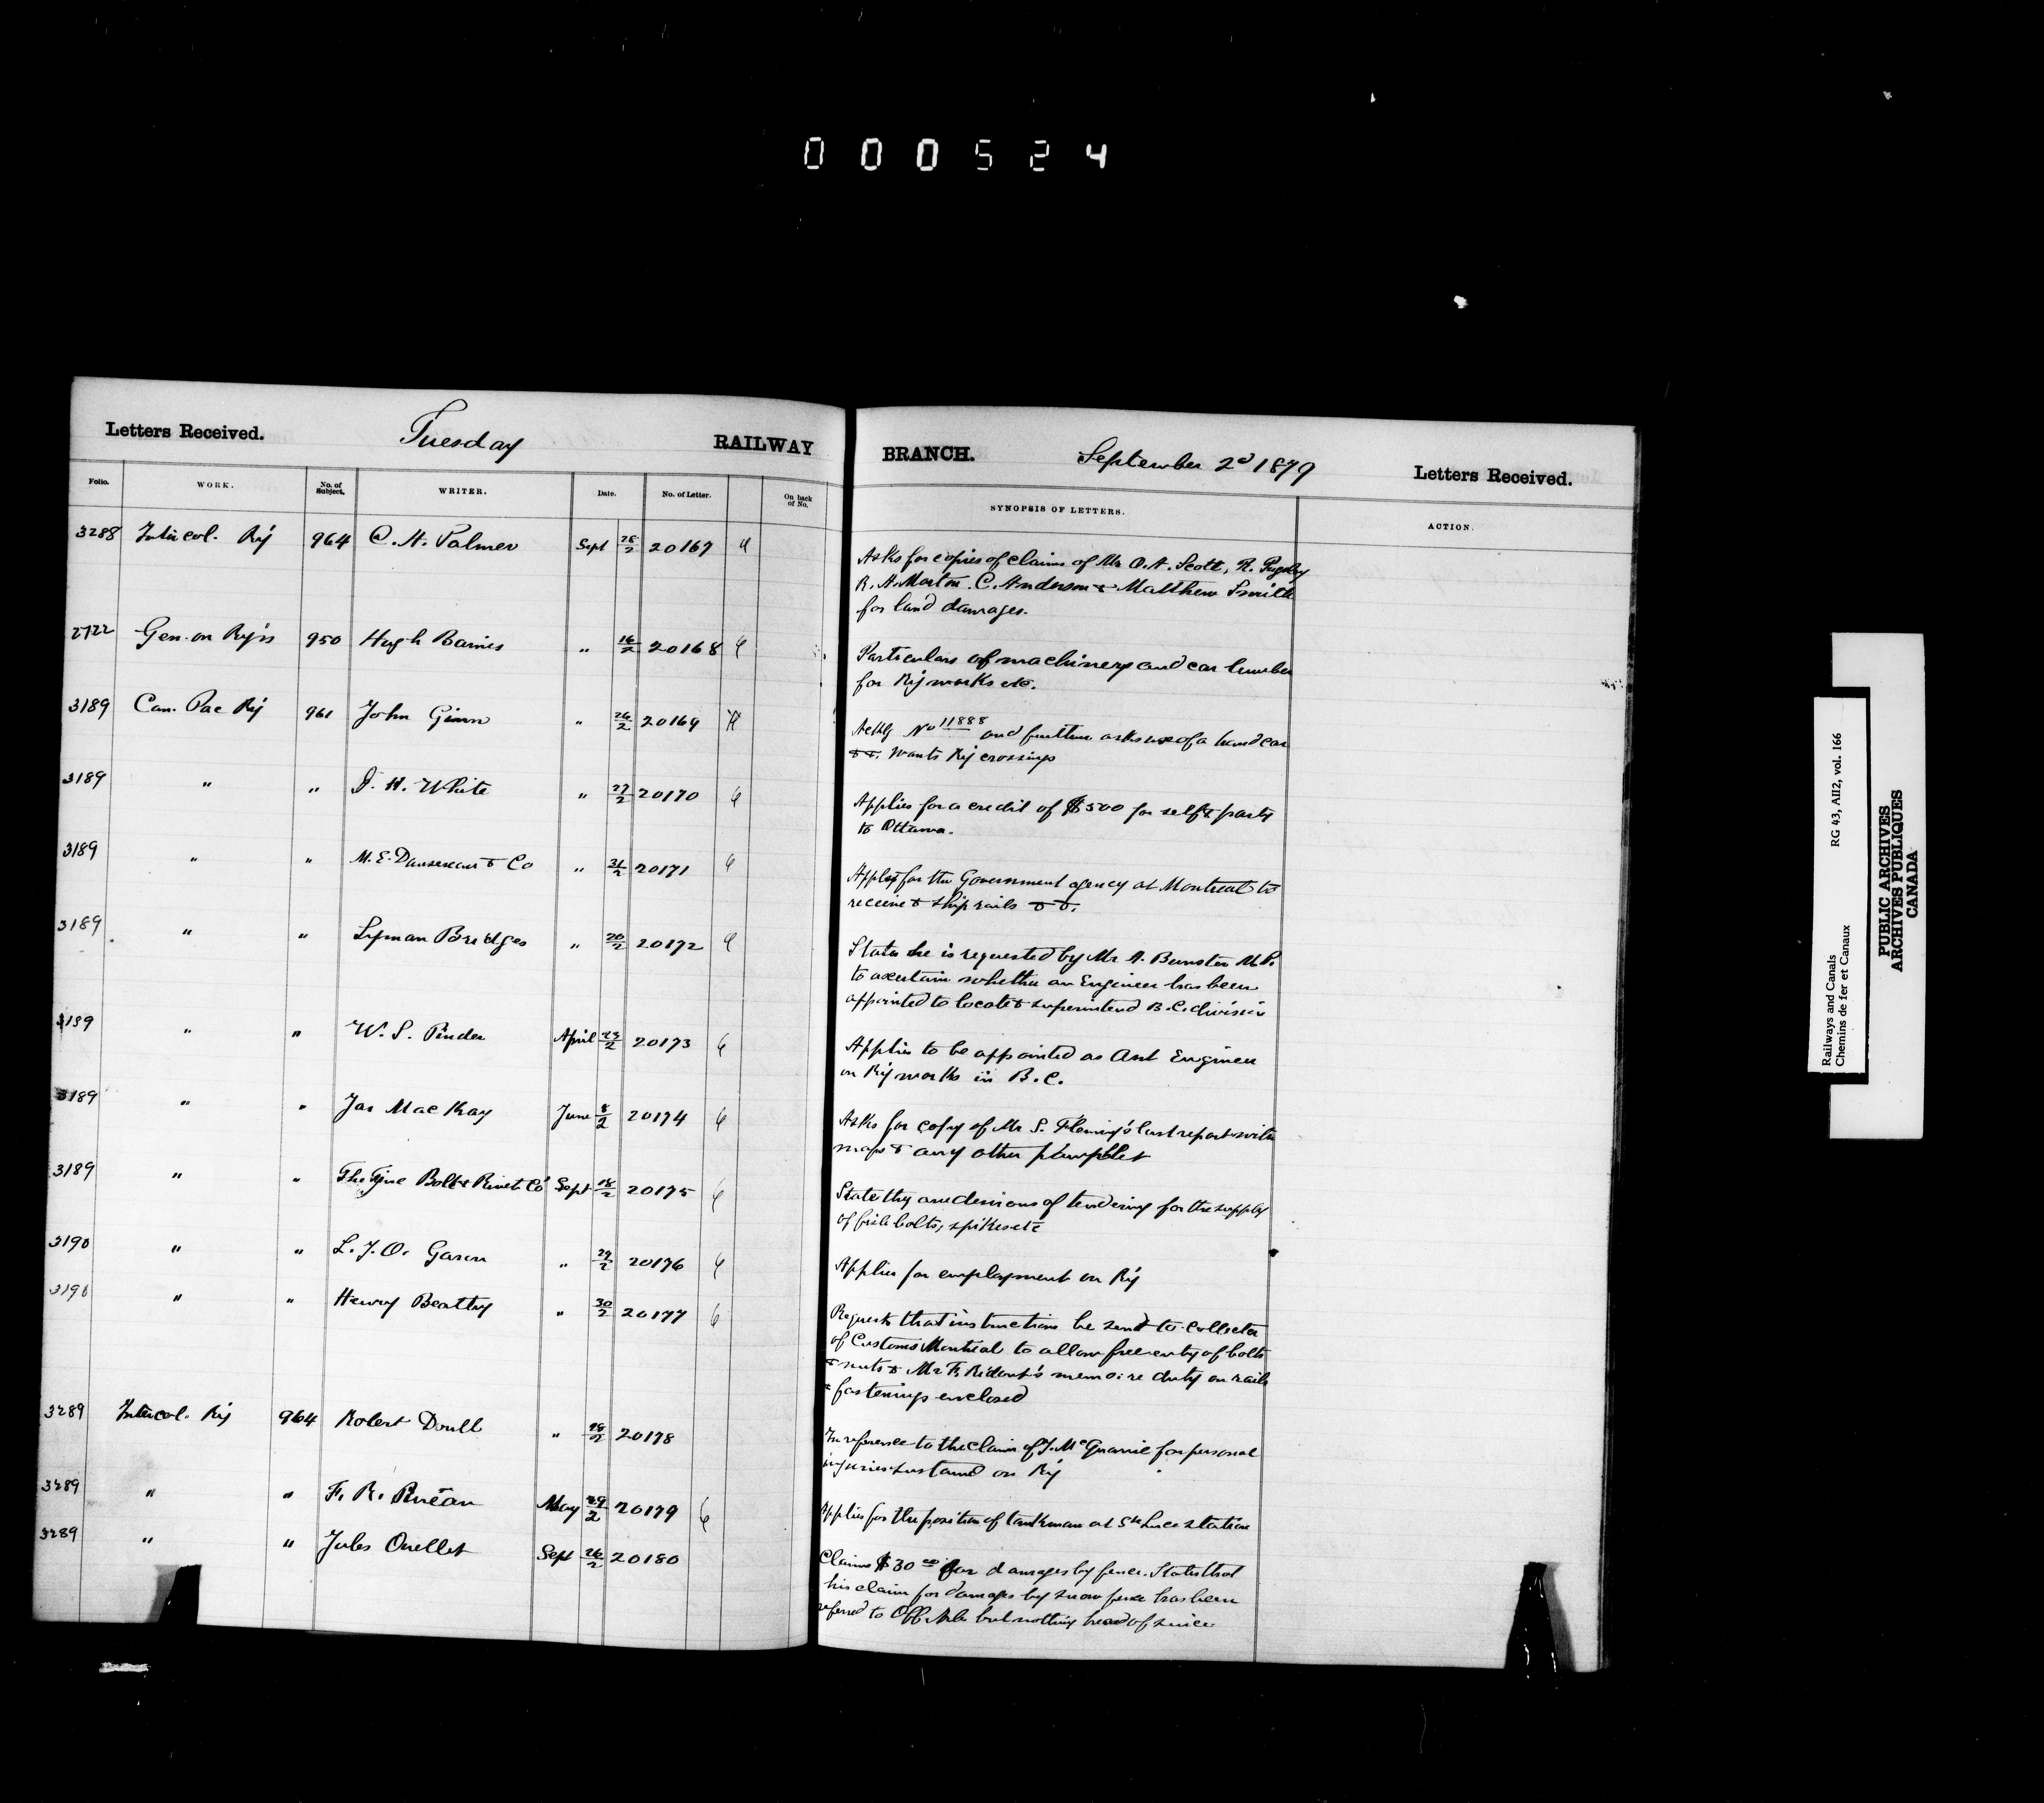 000524
Letters Received. Tuesday RAILWAY BRANCH. September 2d 1879 Letters Received.
Folio. WORK. No. of Subject. WRITER. Date. No. of Letter. On back of No. SYNOPSIS OF LETTERS. ACTION.
3288 Intercol. Ry 964 C. H. Palmer Sept 28/2 20167
Asks for copies of claims of Mr O. A. Scott, R. Pugsley
R. H. Morton. C. Anderson & Matthew Smith
for land damages.
2722 Gen. on Ry's 950 Hugh Baines " 16/2 20168
Particulars of machinery and car lumber
for Ry works etc.
3189 Can. Pac Ry 961 John Ginn " 26/2 20169
Ackg No 11888 and further asks use of a hand car
&c. Wants Ry crossings
3189 " " J. H. White " 27/2 20170
Applies for a credit of $500 for self & party
to Ottawa.
3189 " " M. E. Dansereau & Co " 31/2 20171
Apply for the Government agency at Montreal to
receive & ship rails &c.
3189 " " Lyman Bridges " 20/2 20172
States he is requested by Mr A. Bunster M.P.
to ascertain whether an Engineer has been
appointed to locate & superintend B.C. division
3189 " " W. S. Pinder April 23/2 20173
Applies to be appointed as Asst Engineer
on Ry works in B.C.
3189 " " Jas MacKay June 8/2 20174
Asks for copy of Mr S. Fleming's last report with
maps & any other pamphlet
3189 " " The Tyne Bolt & Rivet Co Sept 18/2 20175
State they are desirous of tendering for the supply
of fish bolts, spikes etc
3190 " " L. J. O. Garon " 29/2 20176
Applies for employment on Ry
3190 " " Henry Beatty " 30/2 20177
Requests that instructions be sent to Collector
of Customs Montreal to allow free entry of bolts
& nuts & Mr F. Ridout's memo: re duty on rails
& fastenings enclosed
3289 Intercol. Ry 964 Robert Doull " 28/2 20178
In reference to the claim of J. McQuarrie for personal
injuries sustained on Ry
3289 " " F. R. May 29/2 20179
Applies for the position of tankman at Ste Luce station
3289 " " Jules Ouellet Sept 26/2 20180
Claims $30 00 for damages by fence. States that
his claim for damages by snow fence has been
referred to Off. Arb but nothing heard of since
Railways and Canals RG 43, AII2, vol. 166
Chemins de fer et Canaux
PUBLIC ARCHIVES
ARCHIVES PUBLIQUES
CANADA